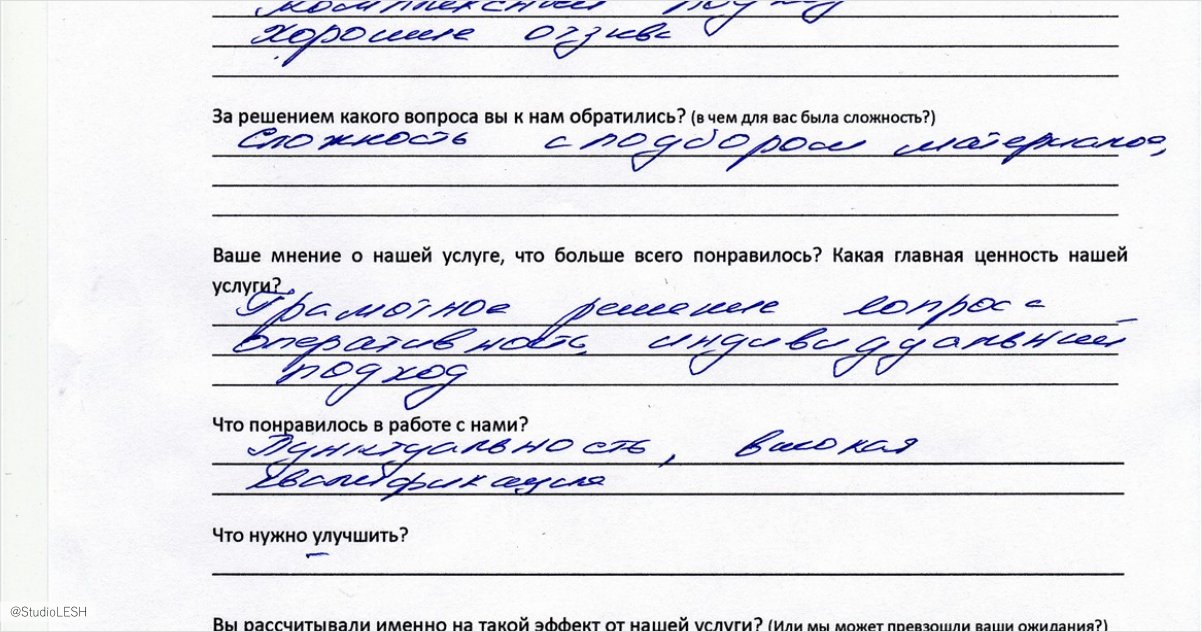 комплексный подход
Хорошие отзывы
За решением какого вопроса вы к нам обратились? (в чем для вас была сложность?)
Сложность с подбором материалов,
Ваше мнение о нашей услуге, что больше всего понравилось? Какая главная ценность нашей
услуги?
Грамотное решение вопроса
оперативность, индивидуальный
подход
Что понравилось в работе с нами?
Пунктуальность, высокая
квалификация
Что нужно улучшить?
–
Вы рассчитывали именно на такой эффект от нашей услуги? (Или мы может превзошли ваши ожидания?)
@StudioLESH